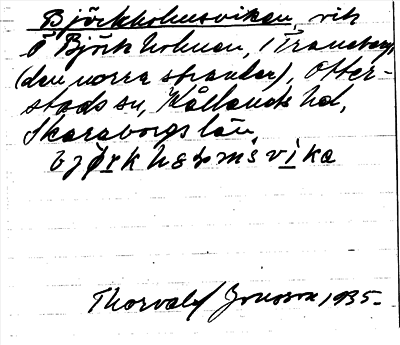 Björkholmsviken, vik
i Björkholmen, i Traneberg
(den norra spranten), Otter-
stads sn, Kållands hd,
Skaraborgs län,
bjørkhɷɫmsvika
Thorvald Jonsson 1935.